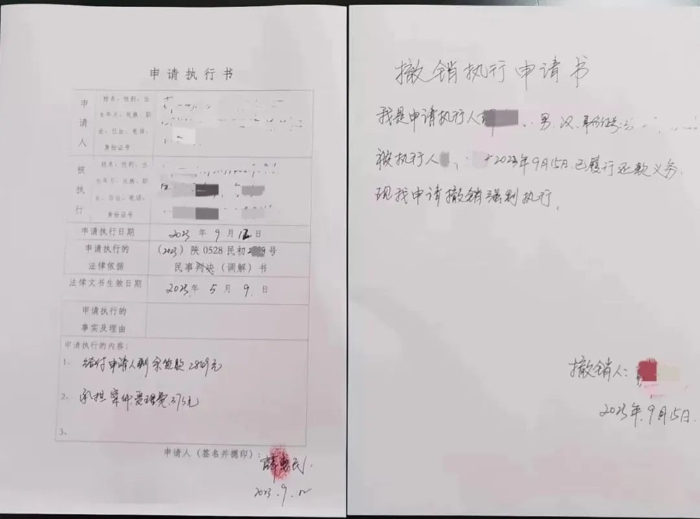 申请执行书
申请人
姓名、性别、出
生年月、民族、职
业、住址、电话、
身份证号
被执行
姓名、性别、出
生年月、民族、职
业、住址、电话、
身份证号
申请执行日期 2023年9月12日
申请执行的
法律依据
(2023)陕0528民初 号
民事判决(调解)书
法律文书生效日期 2023年5月9日
申请执行的
事实及理由
申请执行的内容:
1. 给付申请人剩余 款2869元
2. 承担案件受理费375元
3.
申请人(签名并捺印):
2023.9.12
撤销执行申请书
我是申请执行人 男.汉.身份证:
被执行人 2023年9月15日已履行还款义务
现我申请撤销强制执行。
撤销人:
2023年9月15日